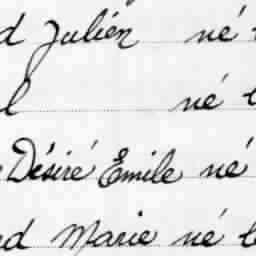 d Julien né
l né l
Désiré Emile né
rd Marie né l